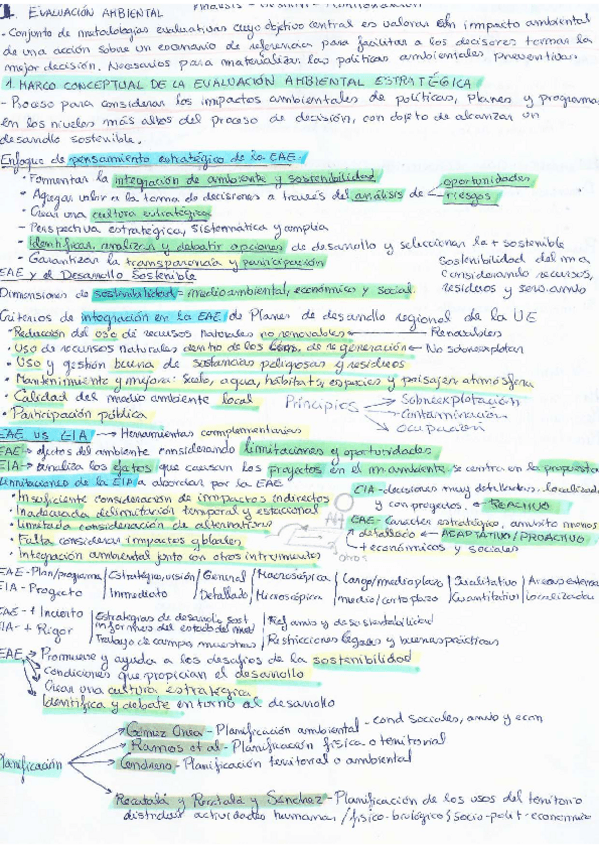 1. EVALUACIÓN AMBIENTAL
- Conjunto de metodologías evaluativas cuyo objetivo central es valorar un impacto ambiental
de una acción sobre un escenario de referencia para facilitar a los decisores tomar la
mejor decisión. Necesarios para materializar las políticas ambientales preventivas
1. MARCO CONCEPTUAL DE LA EVALUACIÓN AMBIENTAL ESTRATÉGICA
- Proceso para considerar los impactos ambientales de políticas, planes y programas
en los niveles más altos del proceso de decisión, con objeto de alcanzar un
desarrollo sostenible.
Enfoque de pensamiento estratégico de la EAE:
· Fomentar la integración de ambiente y sostenibilidad
· Agregar valor a la toma de decisiones a través del análisis de oportunidades
riesgos
· Crear una cultura estratégica
- Perspectiva estratégica, sistemática y amplia
- Identificar, analizar y debatir opciones de desarrollo y seleccionar la + sostenible
- Garantizar la transparencia y participación
Sostenibilidad del m.a
considerando recursos,
residuos y
EAE y el Desarrollo Sostenible
Dimensiones de sostenibilidad = medioambiental, económico y social.
Criterios de integración en la EAE de Planes de desarrollo regional de la UE
· Reducción del uso de recursos naturales no renovables Renovables
· Uso de recursos naturales dentro de los de regeneración No sobreexplotar
· Uso y gestión buena de sustancias peligrosas y residuos
· Mantenimiento y mejora: suelo, agua, hábitats, especies y paisajes, atmósfera
· Calidad del medio ambiente local
· Participación pública
Principios Sobreexplotación
Contaminación
Ocupación
EAE vs EIA → Herramientas complementarias
EAE → efectos del ambiente considerando limitaciones y oportunidades
EIA → analiza los efectos que causan los proyectos en el m.ambiente. se centra en la propuesta
Limitaciones de la EIA a abordar por la EAE
· Insuficiente consideración de impactos indirectos
· Inadecuada delimitación temporal y estacional
· Limitada consideración de alternativas
· Falta considerar impactos globales
· Integración ambiental junto con otros instrumentos
EIA - decisiones muy detalladas, localizadas
y con proyectos. REACTIVO
EAE - Carácter estratégico, ámbito menos
detallado ADAPTATIVO/PROACTIVO
+ económicos y sociales
EAE - Plan/programa / Estratégico, visión / General / Macroscópica / Largo/medio plazo / Cualitativo / Áreas extensas
EIA - Proyecto / Inmediato / Detallado / Microscópica / medio/corto plazo / Cuantitativo / localizadas
EAE - + Incierto / Estrategias de desarrollo sost / y de sostenibilidad
informes del estado del med
EIA - + Rigor / Trabajo de campo, muestras / Restricciones legales y buenas prácticas
EAE → Promueve y ayuda a los desafíos de la sostenibilidad
Condiciones que propician el desarrollo
Crear una cultura estratégica
Identifica y debate en torno al desarrollo
Planificación
Gómez Orea - Planificación ambiental - cond sociales, amb y econ
Ramos et al - Planificación física o territorial
Cendrero - Planificación territorial o ambiental
Recatalá y Sánchez - Planificación de los usos del territorio
distribuir actividades humanas / físico-biológico / Socio-polít-económico